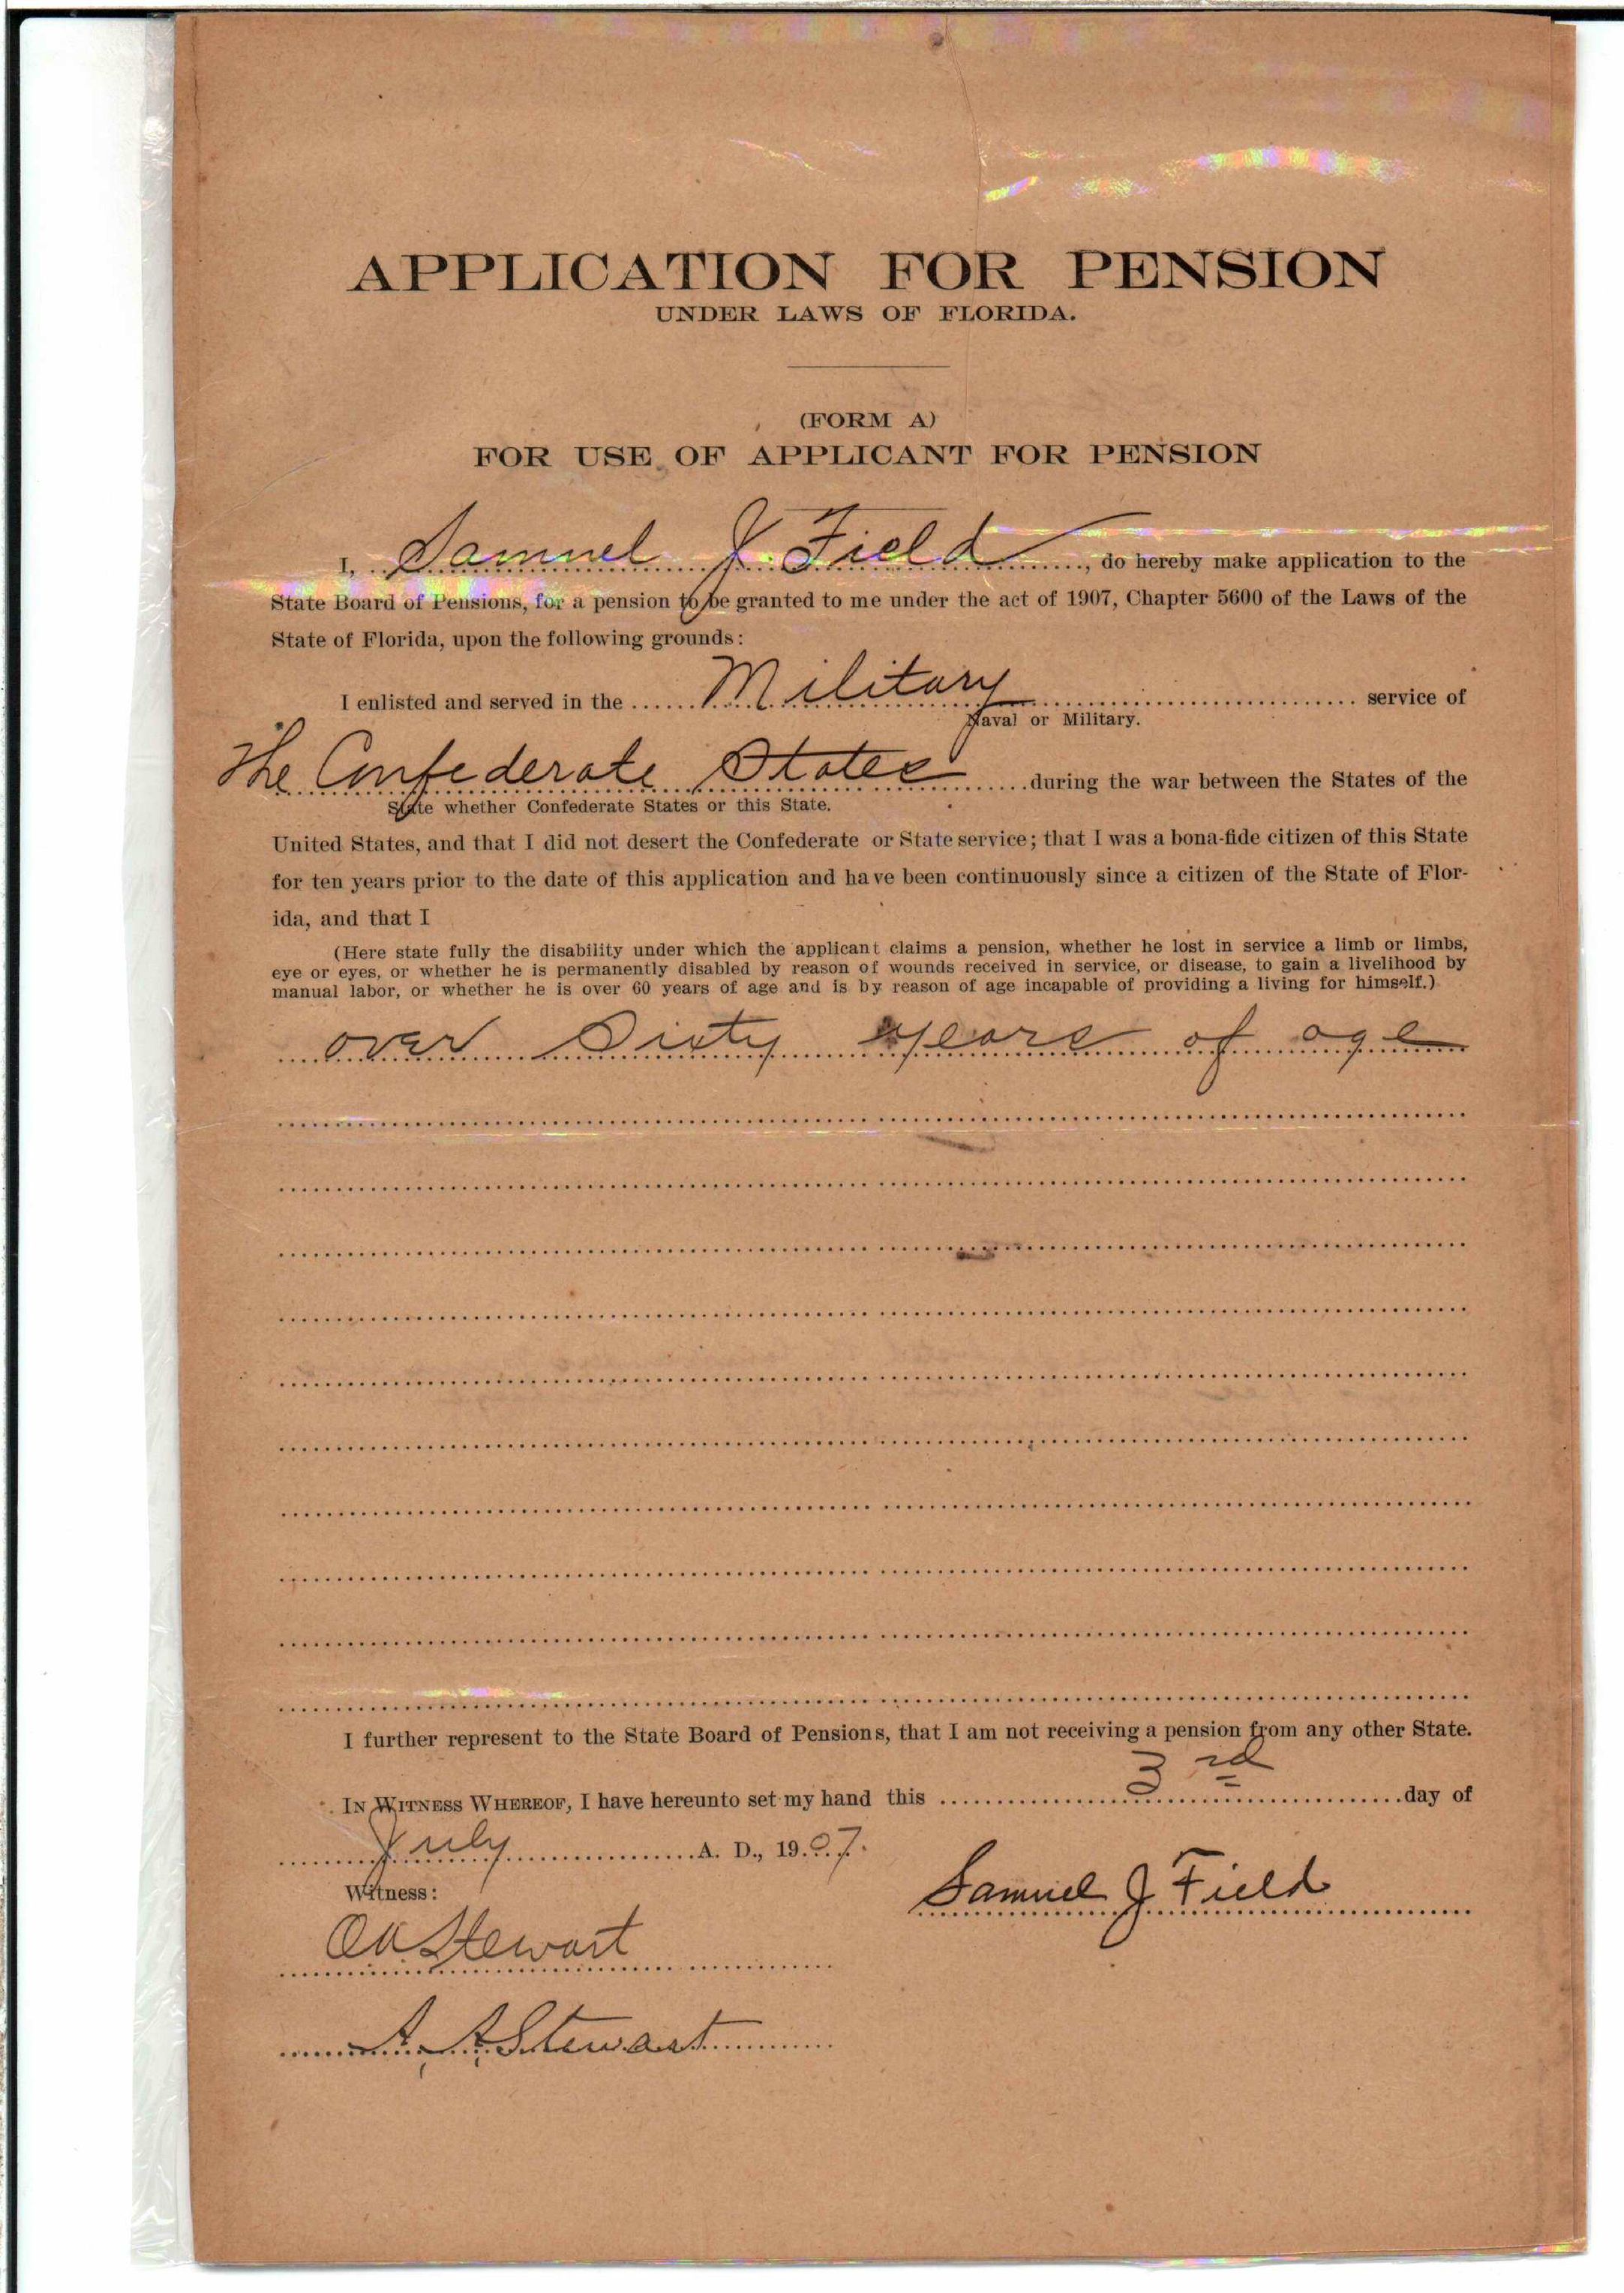 APPLICATION FOR PENSION
UNDER LAWS OF FLORIDA.
(FORM A)
FOR USE OF APPLICANT FOR PENSION
I, Samuel J. Field, do hereby make application to the
State Board of Pensions, for a pension to be granted to me under the act of 1907, Chapter 5600 of the Laws of the
State of Florida, upon the following grounds:
I enlisted and served in the Military service of
Naval or Military.
The Confederate States during the war between the States of the
State whether Confederate States or this State.
United States, and that I did not desert the Confederate or State service; that I was a bona-fide citizen of this State
for ten years prior to the date of this application and have been continuously since a citizen of the State of Flor-
ida, and that I
(Here state fully the disability under which the applicant claims a pension, whether he lost in service a limb or limbs,
eye or eyes, or whether he is permanently disabled by reason of wounds received in service, or disease, to gain a livelihood by
manual labor, or whether he is over 60 years of age and is by reason of age incapable of providing a living for himself.)
over Sixty years of age
I further represent to the State Board of Pensions, that I am not receiving a pension from any other State.
IN WITNESS WHEREOF, I have hereunto set my hand this 3rd day of
July A. D., 1907.
Witness:
Samuel J Field
Stewart
A. A. Stewart